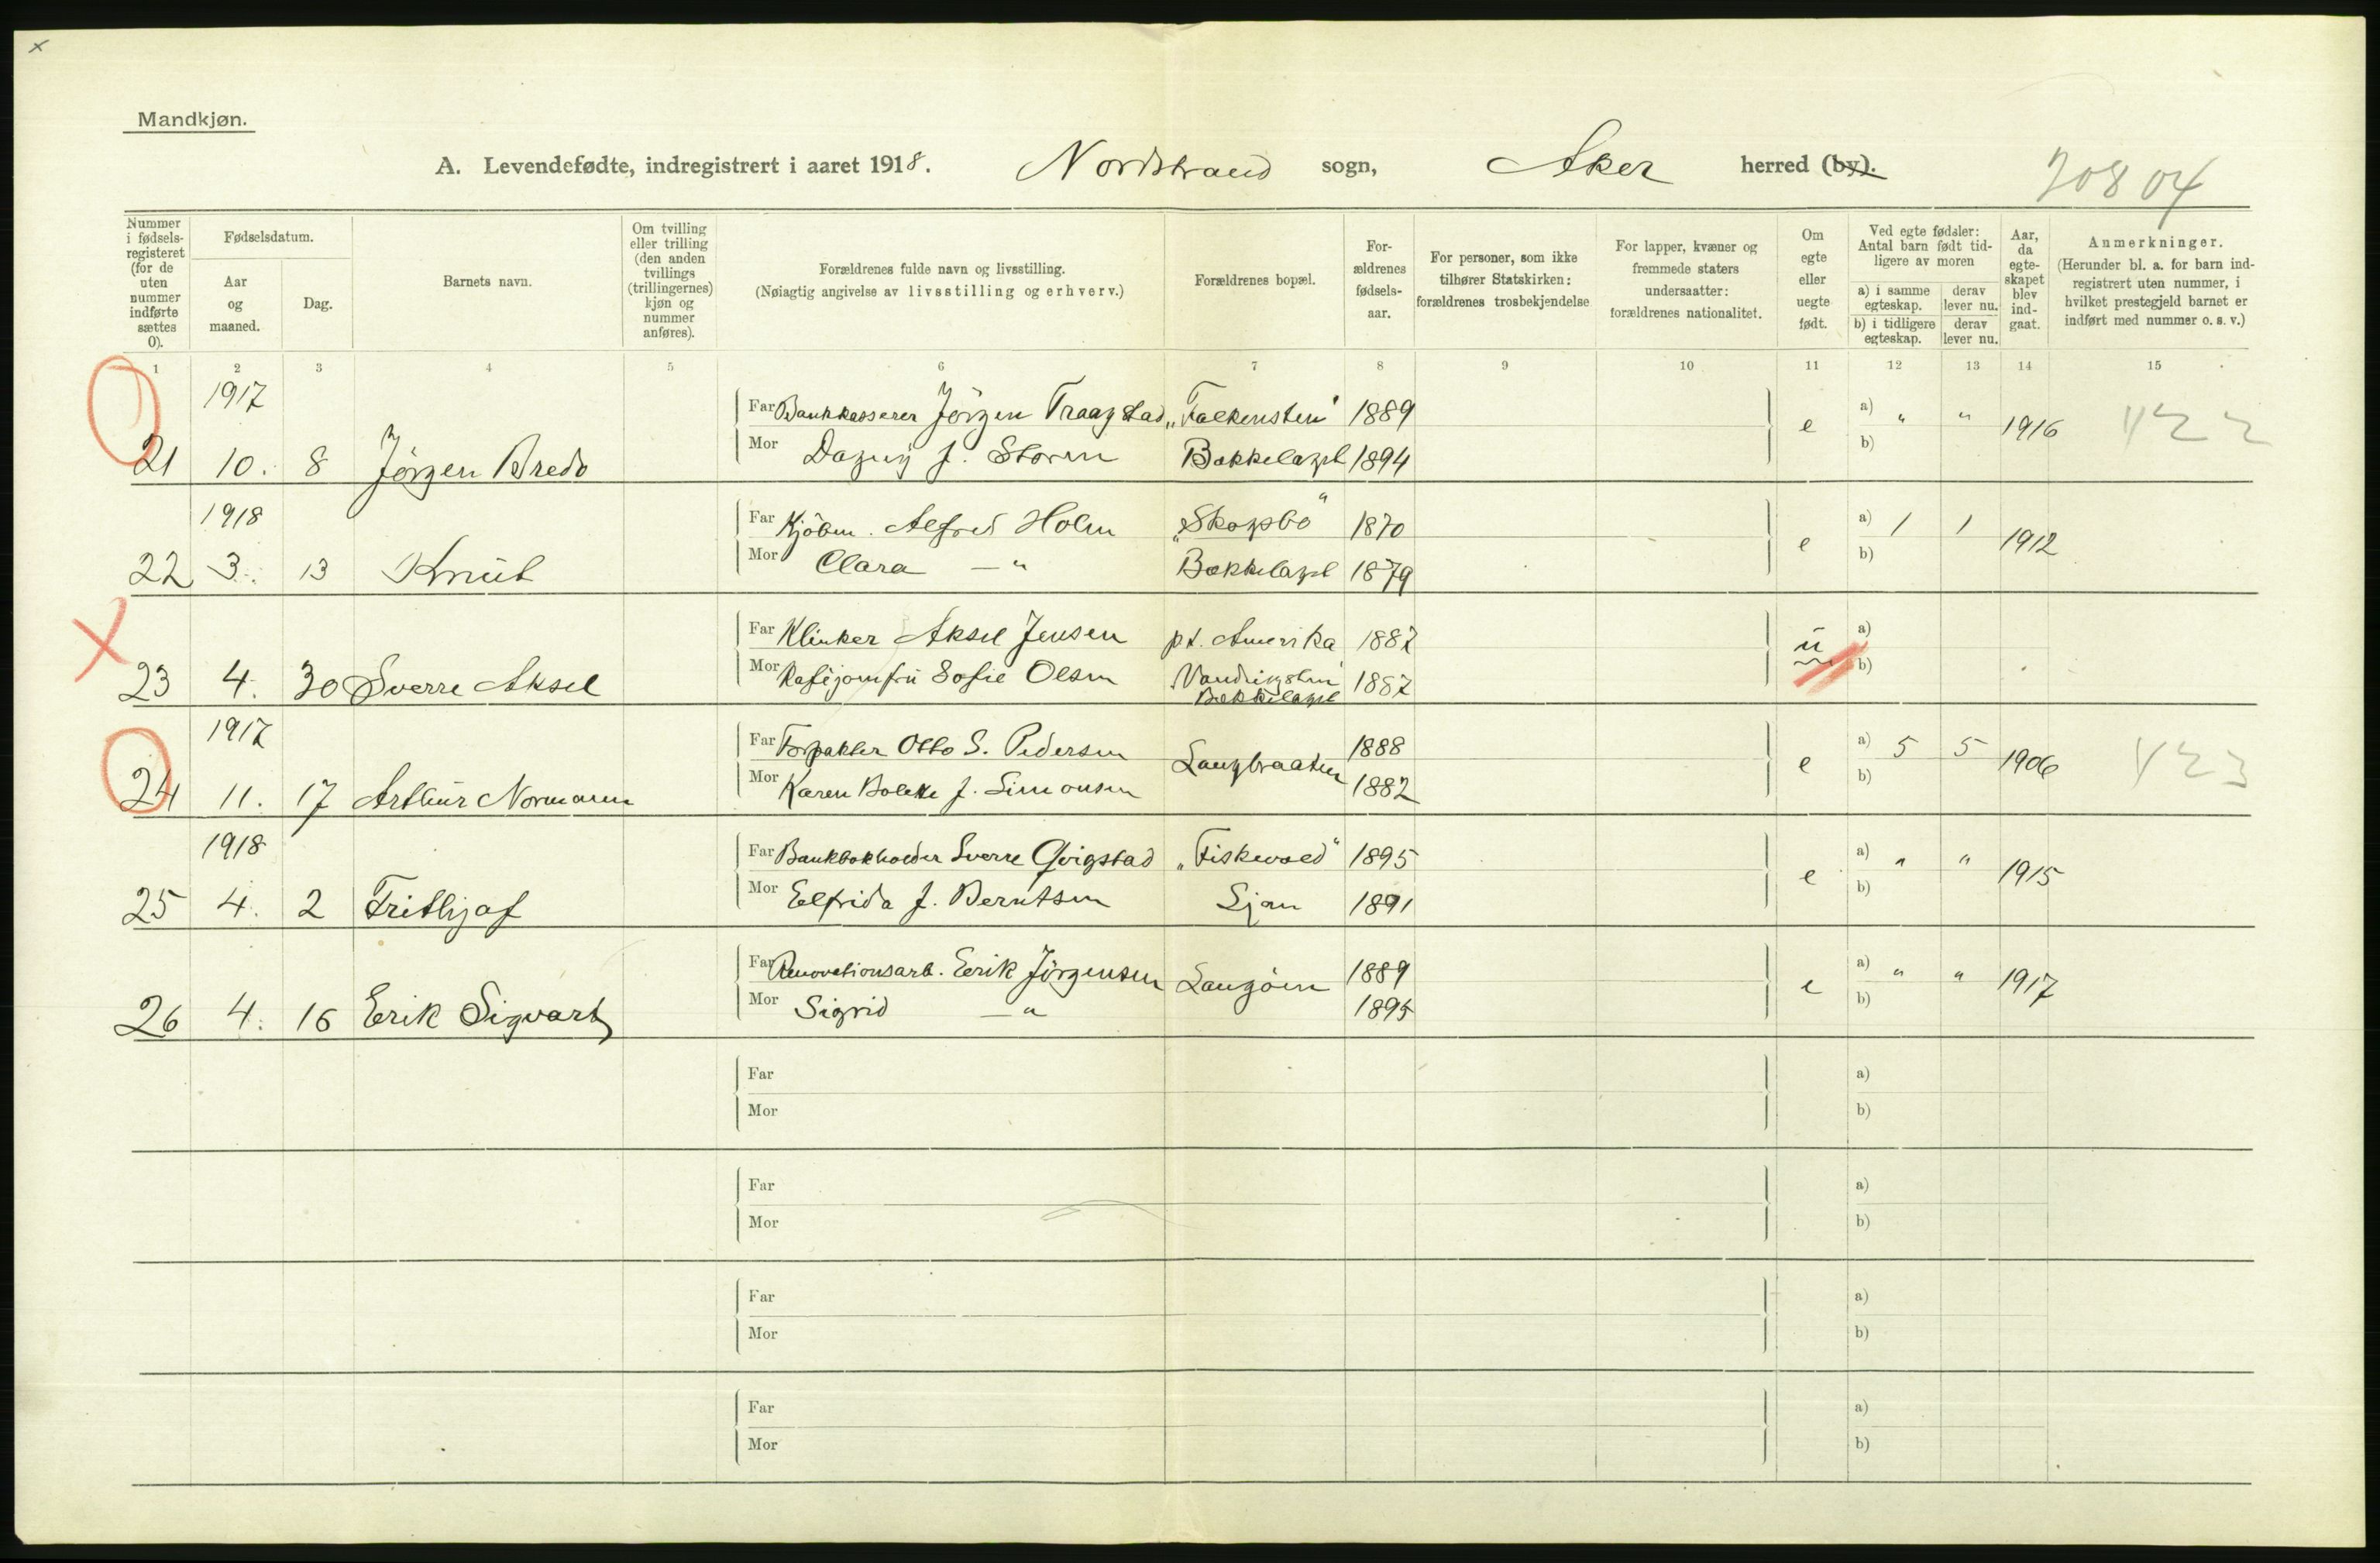 Mandkjøn.
A. Levendefødte, indregistrert i aaret 1918. Nordstrand sogn, Aker herred (by). 20804
Nummer i fødselsregisteret (for de uten nummer indførte sættes 0).
Fødselsdatum.
Aar og maaned.
Dag.
Barnets navn.
Om tvilling eller trilling (den anden tvillings (trillingernes) kjøn og nummer anføres).
Forældrenes fulde navn og livsstilling.
(Nøiagtig angivelse av livsstilling og erhverv.)
Forældrenes bopæl.
Forældrenes fødselsaar.
For personer, som ikke tilhører Statskirken: forældrenes trosbekjendelse
For lapper, kvæner og fremmede staters undersaatter: forældrenes nationalitet.
Om egte eller uegte født.
Ved egte fødsler: Antal barn født tidligere av moren
a) i samme egteskap. derav lever nu.
b) i tidligere egteskap. derav lever nu.
Aar, da egteskapet blev indgaat.
Anmerkninger.
(Herunder bl. a. for barn indregistrert uten nummer, i hvilket prestegjeld barnet er indført med nummer o. s. v.)
1 2 3 4 5 6 7 8 9 10 11 12 13 14 15
1917
Far Bankkasserer Jörgen Traagstad „Falkensten" 1889 a) " "
21 10. 8 Jörgen Bredo Mor Dagny f. Storm Bækkelaget 1894 e b) 1916 422
1918
Far Kjöbm. Alfred Holm „Skogbo" 1870 a) 1 1
22 3. 13 Knut Mor Clara —" Bækkelaget 1879 e b) 1912
Far Klinker Aksel Jensen pt. Amerika 1887 a)
23 4. 30 Sverre Aksel Mor Kafejomfru Sofie Olsen Bækkelaget 1887 u b)
1917
Far Forpakter Otto S. Pedersen Langbraaten 1888 a) 5 5
24 11. 17 Arthur Normann Mor Karen Bolette f. Simonsen 1882 e b) 1906 423
1918
Far Bankbokholder Sverre Qvigstad „Fiskevold" 1895 a) " "
25 4. 2 Frithjof Mor Elfrida f. Berntsen Ljan 1891 e b) 1915
Far Renovationsarb. Erik Jörgensen Langöen 1889 a) " "
26 4. 16 Erik Sigvart Mor Sigrid —" 1895 e b) 1917
Far a)
Mor b)
Far a)
Mor b)
Far a)
Mor b)
Far a)
Mor b)